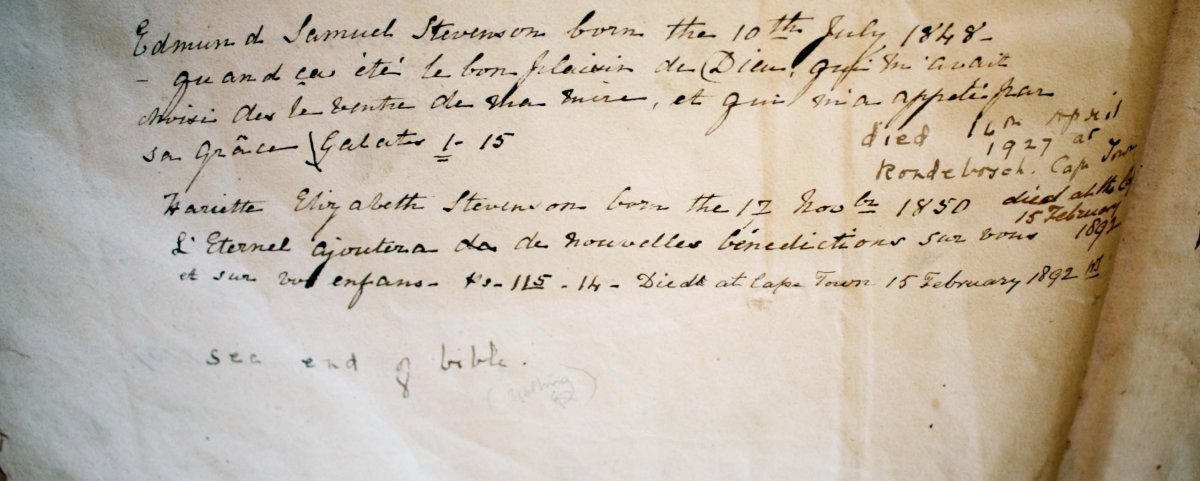 Edmund Samuel Stevenson born the 10th July 1848-
- quand ça été le bon plaisir de Dieu, qui m'avait
choisi des le ventre de ma mere, et qui m'a appelé par
sa Grâce Galates 1- 15
died 14th April
1927 at
Rondebosch. Cape Town
Hariette Elizabeth Stevenson born the 17 Novbr 1850
died at the
15 February
1892
L'Eternel ajoutera de nouvelles bénédictions sur vous
et sur vos enfans- Ps- 115 - 14 - Died at Cape Town 15 February 1892
see end of bible.
(nothing